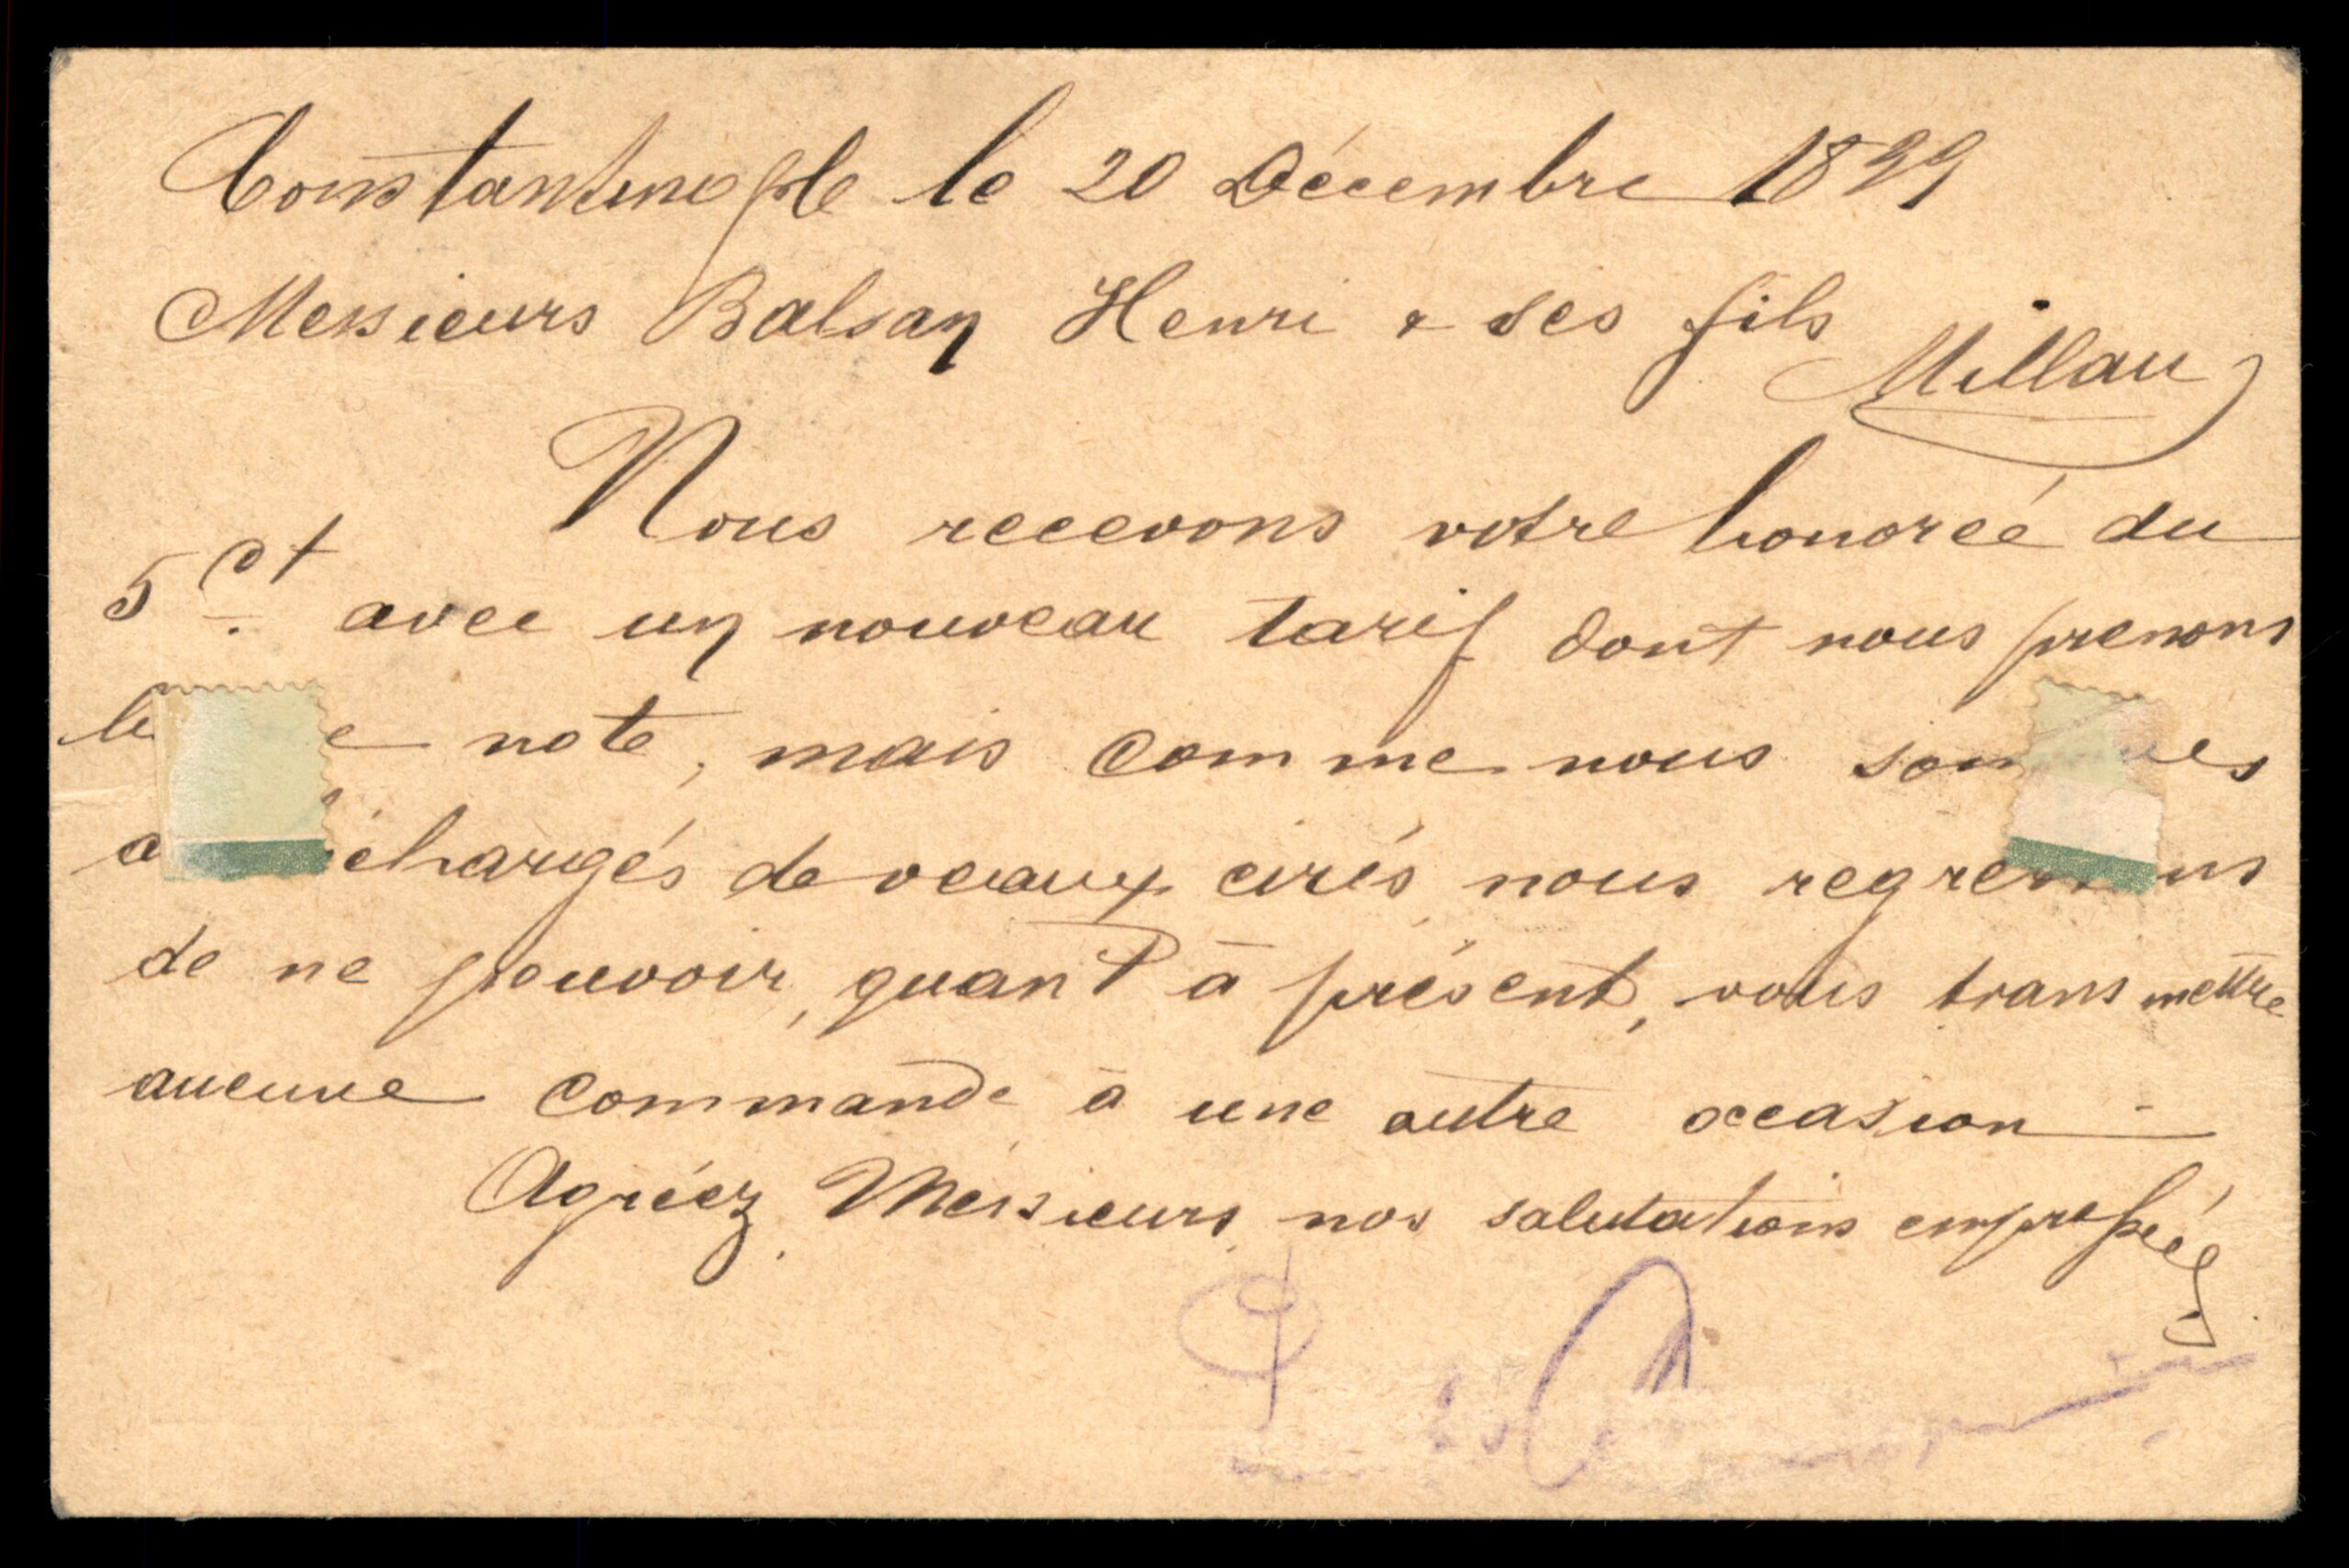 Constantinople le 20 Décembre 1899
Messieurs Balsan Henri & ses fils
Millau
Nous recevons votre honorée du
5 ct avec un nouveau tarif dont nous prenons
note, mais comme nous sommes
chargés de veaux cirés nous regrettons
de ne pouvoir, quant à présent, vous transmettre
aucune commande à une autre occasion -
Agréez, Messieurs, nos salutations empressées